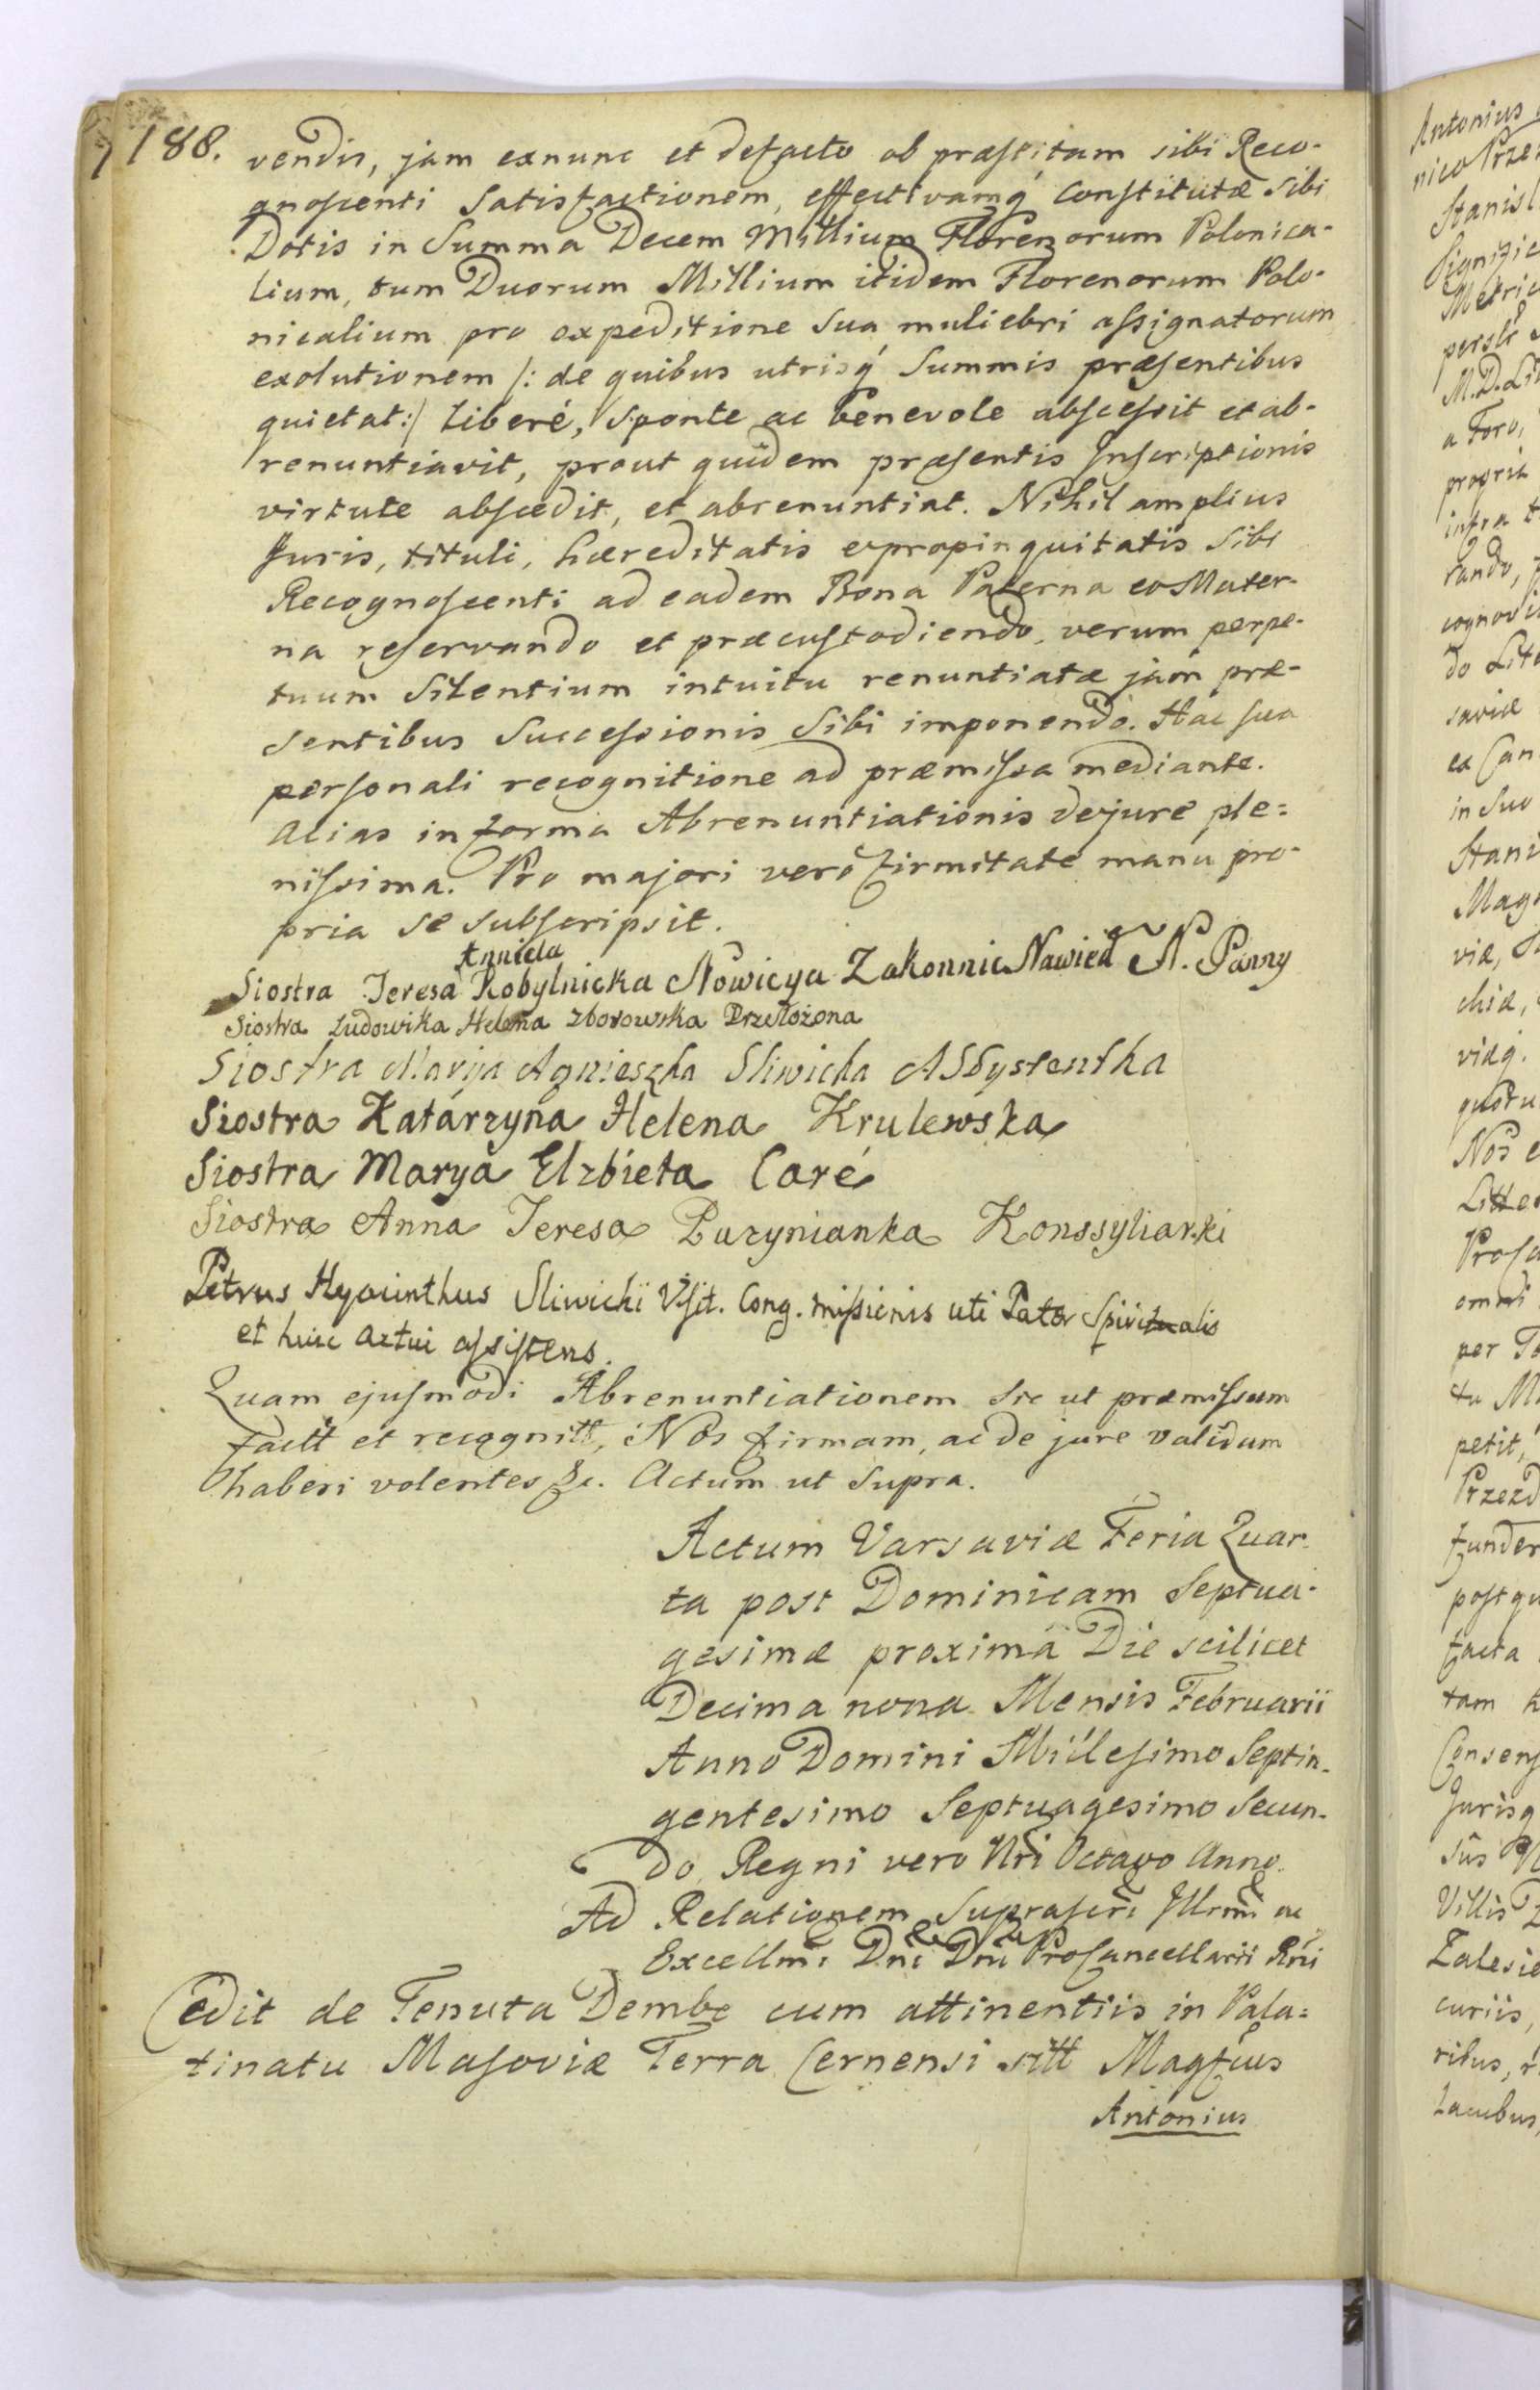 188.
vendis, jam exnunc et defacto ob præstitam sibi Reco-
gnoscenti Satisfactionem, effectivamq́ Constitutæ Sibi
Dotis in Summa Decem Millium Florenorum Polonica-
lium, tum Duorum Millium itidem Florenorum Polo-
nicalium pro expeditione Sua muliebri assignatorum
exolutionem /: de quibus utrisq́ Summis præsentibus
quietat :/ Liberé, Sponte ac benevole abscessit et ab-
renuntiavit, prout quidem præsentis Inscriptionis
virtute abscedit, et abrenuntiat. Nihil amplius
Juris, tituli, hæreditatis et propinquitatis Sibi
Recognoscenti ad eadem Bona Paterna et Mater-
na reservando et præcustodiendo, verum perpe-
tuum Silentium intuitu renuntiatæ jam præ-
sentibus Successionis Sibi imponendo. Hac sua
personali recognitione ad præmissa mediante.
Alias in forma Abrenuntiationis dejure ple=
nissima. Pro majori veró firmitate manu pro-
pria se subscripsit.
Anniela
Siostra Teresa Kobylnicka Nowicya Zakonnic Nawied N. Panny
Siostra Ludowika Helena Zborowska Przełożona
Siostra Maryja Agnieszka Sliwicka Assystentka
Siostra Katárzyna Helena Krulewska
Siostra Marya Elzbieta Caré
Siostra Anna Teresa Puzynianka Konssyliarki
Petrus Hyacinthus Sliwicki Visit. Cong. Missionis uti Pater Spiritualis
et huic actui assistens.
Quam ejusmodi Abrenuntiationem sic ut præmissum
factt et recognitt, Nos firmam, ac de jure validam
haberi volentes &c. Actum ut Supra.
Actum Varsaviæ Feria Quar-
ta post Dominicam Septua-
gesimæ proximâ Die scilicet
Decima nona Mensis Februarii
Anno Domini Millesimo Septin-
gentesimo Septuagesimo Secun-
do, Regni vero Nri Octavo Anno.
Ad Relationem Suprascri Illrmi ac
Excellmi Dni Dni ProCancellarii Rni
Cedit de Tenuta Dembe cum attinentiis in Pala=
tinatu Masoviæ Terra Cernensi sitt Magfcus
Antonius
Antonius
nico Prze
Stanisl
Signific
Metric
perstr
M. D. Li
a Foro,
proprit
infra t
rando,
cognovi
do Lit
saviæ
ex Can
in Suo
Stani
Mag
viæ,
chiæ,
viæq.
quotu
Nos e
Litte
ProCa
omni
per To
tu M
petit,
Przezd
funder
post qu
facta
tam h
Consens
Jurisq
sus
Villis
Zalesie
curiis,
ribus, r
Lacubus,